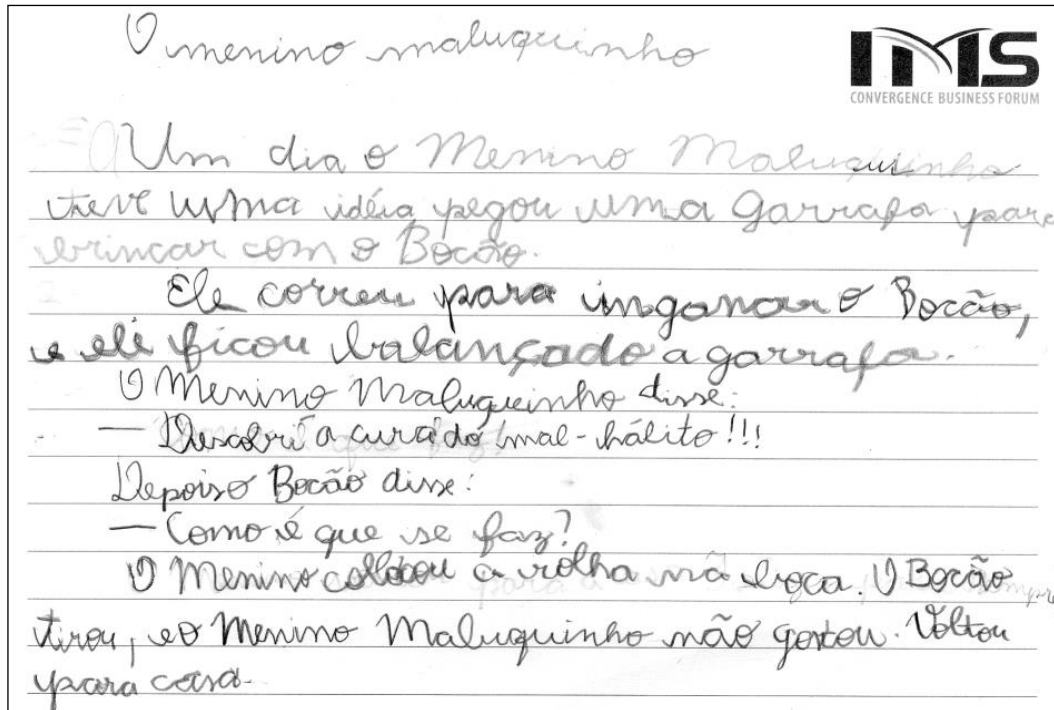 O menino maluquinho
IMS
CONVERGENCE BUSINESS FORUM
Um dia o Menino Maluquinho
teve uma idéia pegou uma garrafa para
brincar com o Bocão.
Ele correu para inganar o Bocão,
e ele ficou balançado a garrafa.
O Menino Maluquinho disse:
— Descobri a cura do mal-hálito!!!
Depois o Bocão disse:
— Como é que se faz?
O Menino colocou a rolha na boca. O Bocão
tirou, e o Menino Maluquinho não gostou. Voltou
para casa.